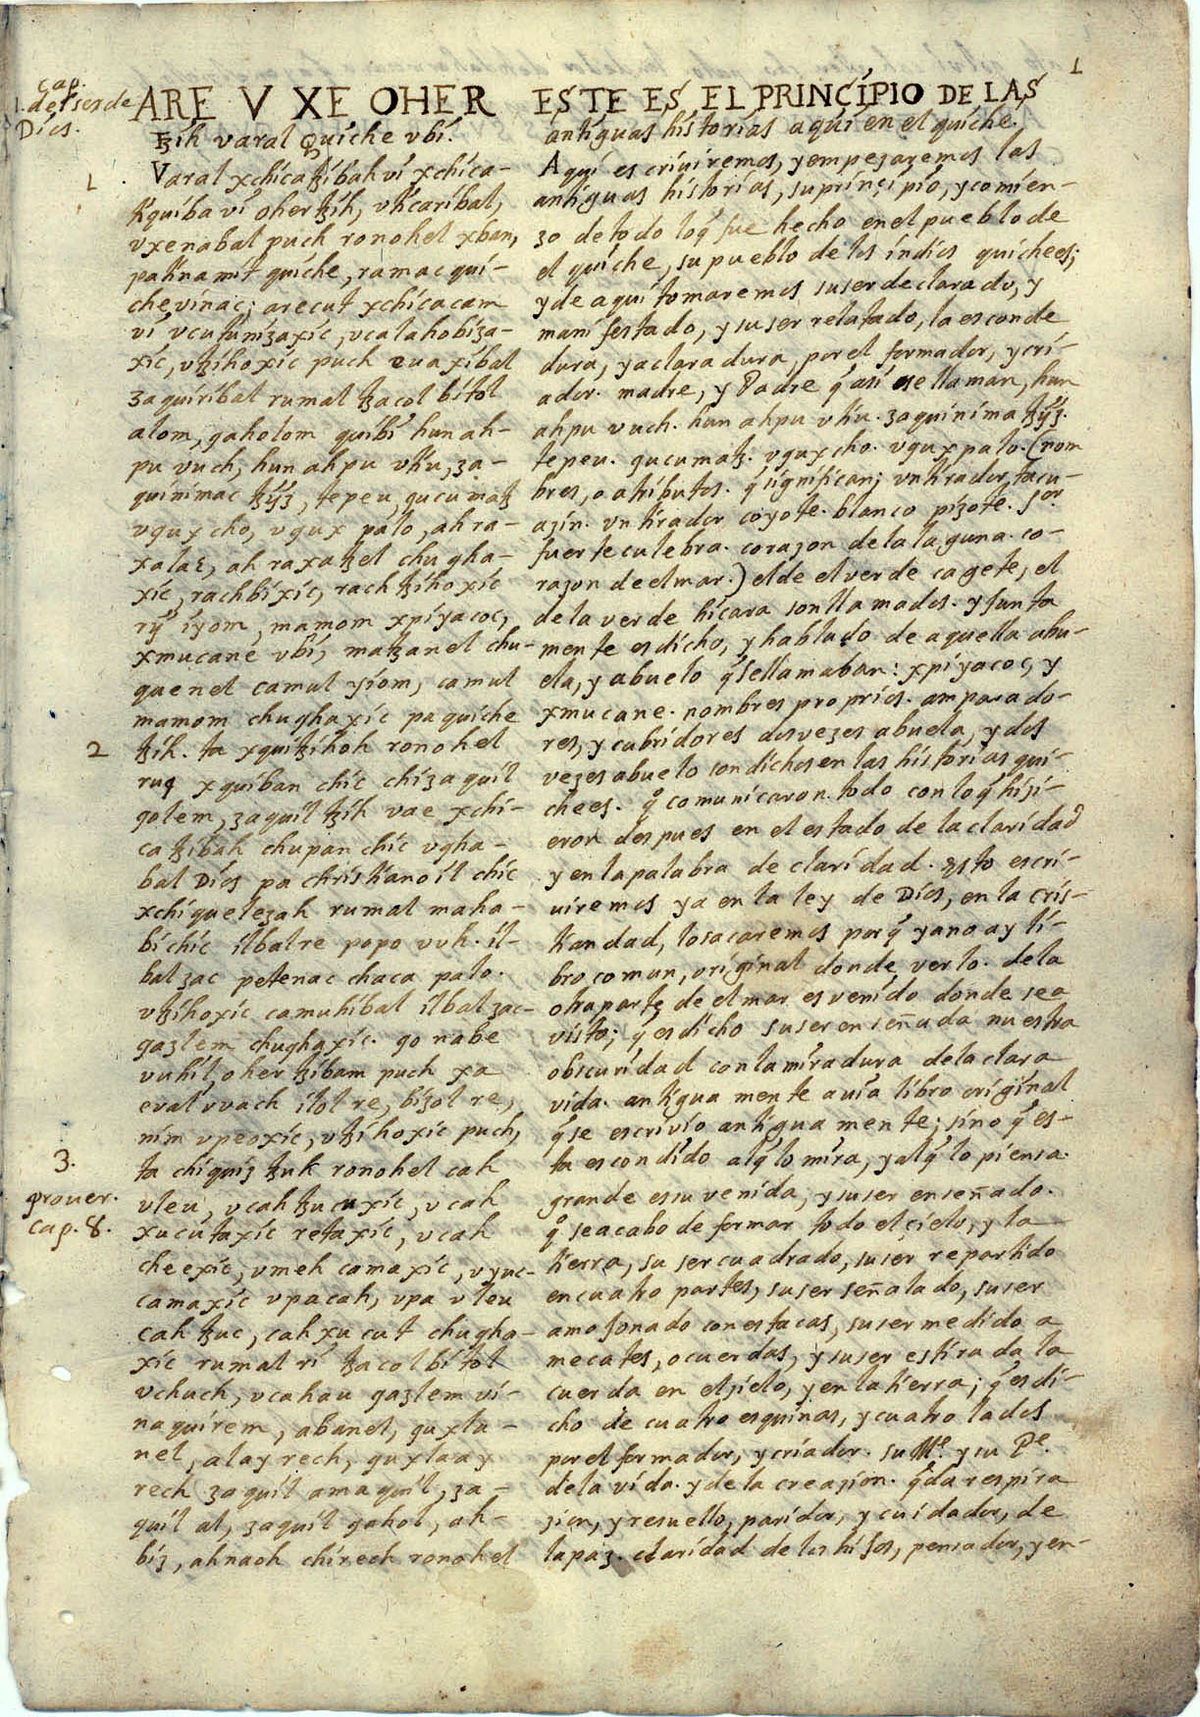 1
cap.
1. del ser de
Dios.
ARE V XE OHER
tzih varal Quiche vbi.
1
Varal xchicatzibah vi xchica-
tiquiba vi oher tzih, vticaribal,
vxenabal puch ronohel xban,
pa tinamit quiche, ramac qui-
che vinac; arecut xchicacam
vi vcutunizaxic, vcalahobiza-
xic, vtzihoxic puch euaxibal
zaquiribal rumal tzacol bitol
alom, qaholom quibi hun ah-
pu vuch, hun ahpu vtiu, za-
quinimac tzÿz, tepeu, qucumatz
vqux cho, vqux palo, ah ra-
xalaε, ah raxatzel chugha-
xic, rachbixic, rach tzihoxic
rÿ iyom, mamom xpiyacoc,
xmucane vbi, matzanel chu-
quenel camul yiom, camul
mamom chughaxic pa quiche
2
tzih. ta xquitzihoh ronohel
ruq xquiban chic chi zaquil
qolem, zaquil tzih vae xchi-
ca tzibah chupan chic vgha-
bal Dios pa christianoil chic
xchiquelezah rumal maha-
bi chic ilbal re popo vuh. il-
bal zac petenac chaca palo.
vtzihoxic camuhibal ilbal zac-
qazlem chughaxic. qo nabe
vuhil, oher tzibam puch xa
eval vvach ilol re, bizol re,
nim vpeoxic, vtzihoxic puch,
3.
ta chiquiz tzuk ronohel cah
prouer.
cap. 8.
vleu, vcah tzucuxic, vcah
xucutaxic retaxic, vcah
cheexic, vmeh camaxic, vyuc-
camaxic vpa cah, vpa vleu
cah tzuc, cah xucut chugha-
xic rumal ri tzacol bitol
vchuch, vcahau qazlem vi-
naquirem, abanel, quxla-
nel, alay rech, quxlaay
rech zaquil amaquil, za-
quil al, zaquil qahol, ah-
biz, ahnaoh chirech ronohel
ESTE ES EL PRINCIPIO DE LAS
antiguas historias aqui en el quiche.
Aqui escriuiremos, y empezaremos las
antiguas historias, su prinçipio, y comien-
zo de todo lo q̃ fue hecho en el pueblo de
el quiche, su pueblo de los indios quichees;
y de aqui tomaremos su ser declarado, y
manifestado, y su ser relatado, la esconde
dura, y aclaradura, por el formador, y cri-
ador. madre, y Padre q̃ asi se llaman, hun
ahpu vuch. hun ahpu vtiu. zaquinima tzÿz.
tepeu. qucumatz. vqux cho. vqux palo. (nom
bres, o atributos. q̃ significan; vn tirador, tacu-
azin. vn tirador coyote. blanco pizote. Sor.
fuerte culebra. corazon de la laguna. co-
razon de el mar.) el de el verde cagete, el
de la verde hicara son llamados. y junta
mente es dicho, y hablado de aquella abu-
ela, y abuelo q̃ se llamaban: xpiyacoc, y
xmucane. nombres proprios. amparado-
res, y cubridores dos vezes abuela, y dos
vezes abuelo son dichos en las historias qui-
chees. q̃ comunicaron todo con lo q̃ hizi-
eron despues en el estado de la claridad
y en la palabra de claridad. Esto escri-
uiremos ya en la ley de Dios, en la cris-
tiandad, lo sacaremos porq̃ ya no ay li-
bro comun, original donde verlo. de la
otra parte de el mar es venido donde sea
visto; q̃ es dicho su ser enseñada nuestra
obscuridad con la miradura de la clara
vida. antigua mente auia libro original
q̃ se escrivio antigua mente; sino q̃ es-
ta escondido al q̃ lo mira, y al q̃ lo piensa.
grande es su venida, y su ser enseñado.
q̃ se acabo de formar todo el çielo, y la
tierra, su ser cuadrado, su ser repartido
en cuatro partes, su ser señalado, su ser
amojonado con estacas, su ser medido a
mecates, o cuerdas, y su ser estirada la
cuerda en el zielo, y en la tierra; q̃ es di-
cho de cuatro esquinas, y cuatro lados
por el formador, y criador. su Me. y su Pe.
de la vida. y de la creazion. q̃ da respira
zion, y resuello, paridor, y cuidador, de
la paz. claridad de los hijos, pensador, y en-